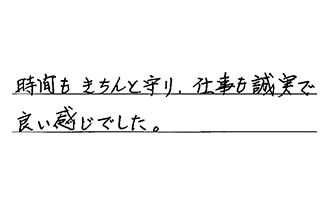 時間もきちんと守り、仕事も誠実で
良い感じでした。